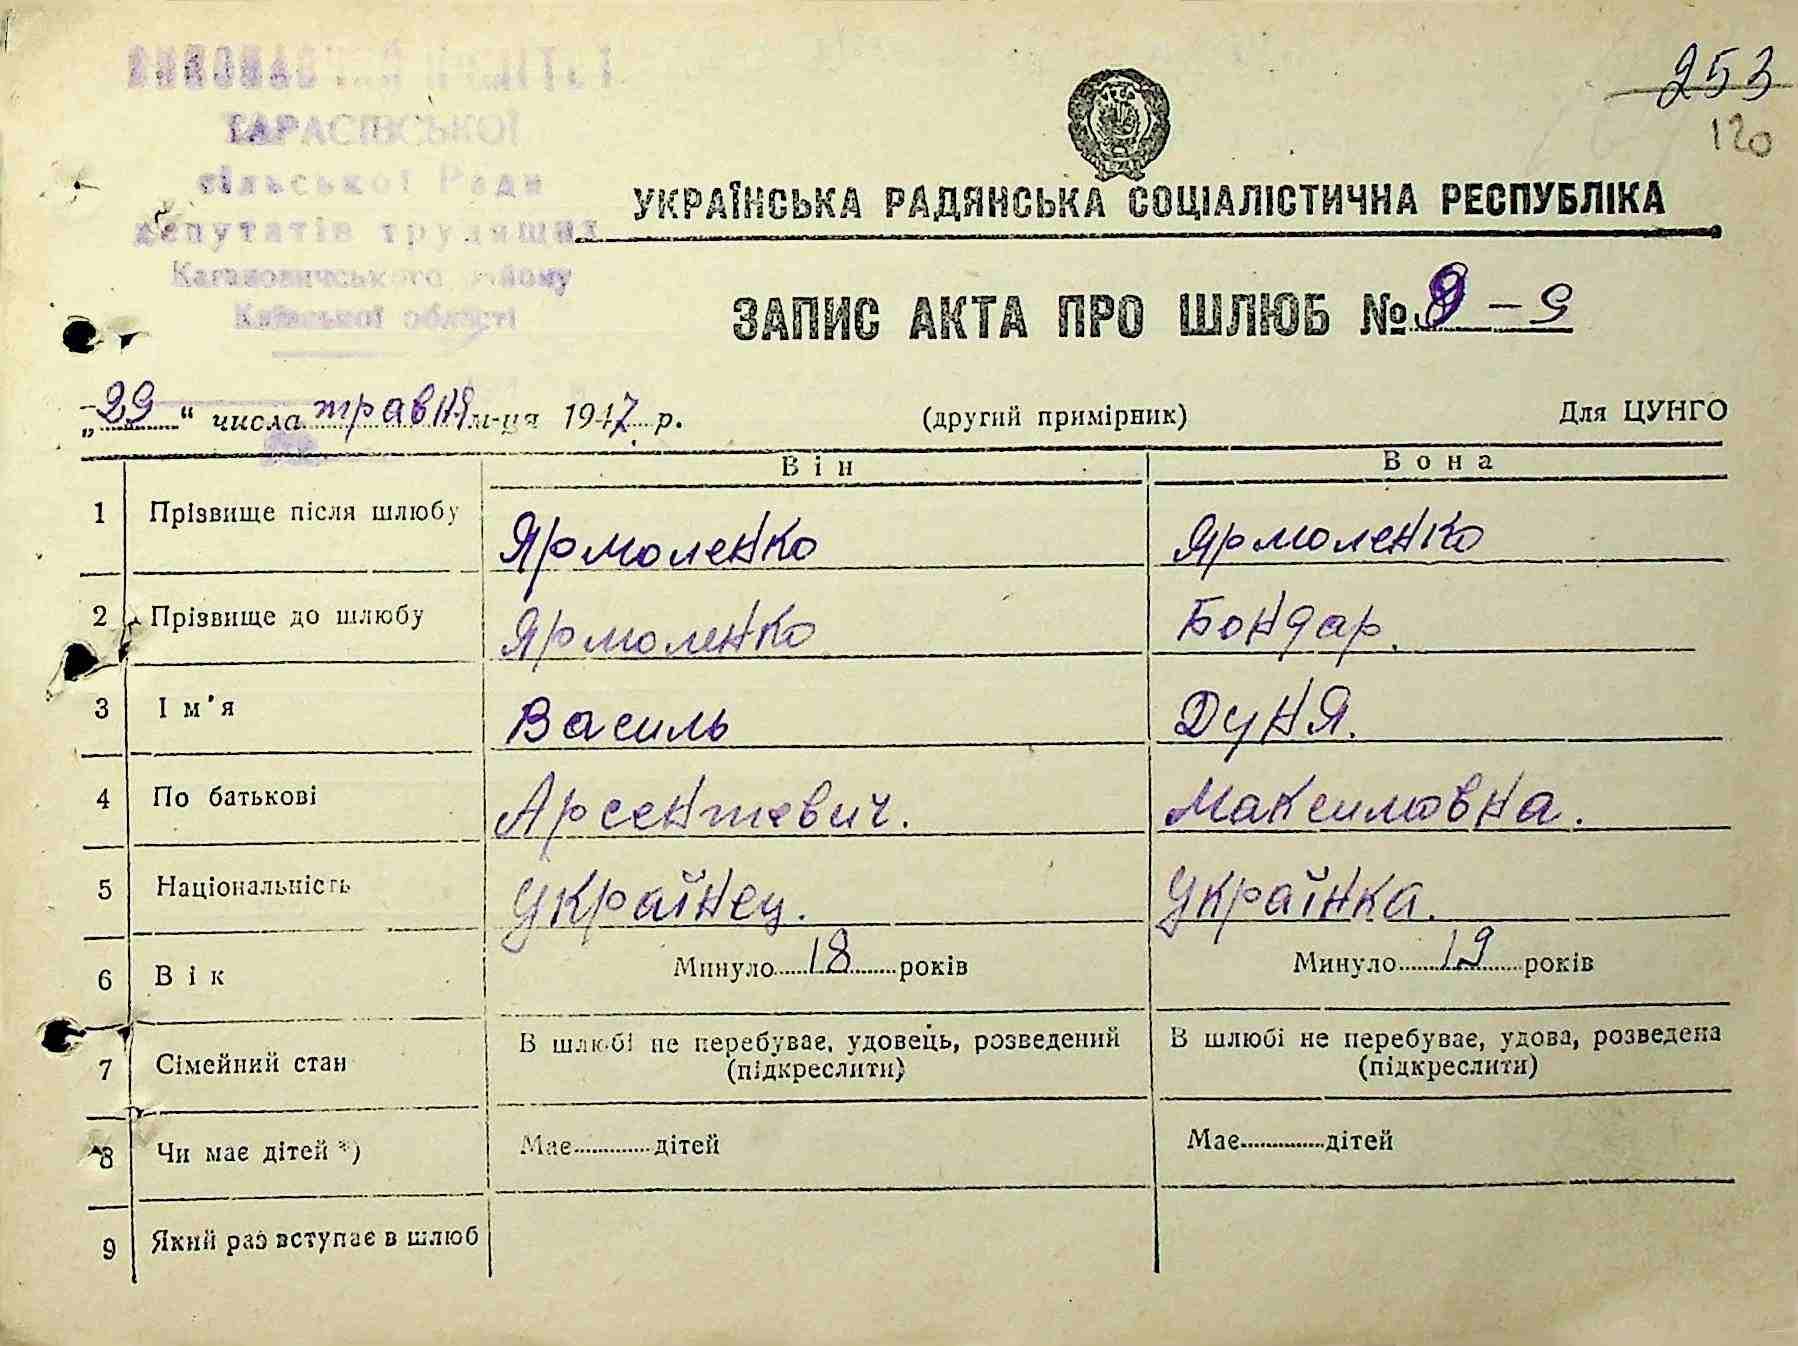 253
120
ВИКОНАВЧИЙ КОМІТЕТ
ТАРАСІВСЬКОЇ
сільської Ради
депутатів трудящих
Кагановичського району
Київської області
УКРАЇНСЬКА РАДЯНСЬКА СОЦІАЛІСТИЧНА РЕСПУБЛІКА
ЗАПИС АКТА ПРО ШЛЮБ № 9 - 9
„29“ числа травня м-ця 1947 р. (другий примірник) Для ЦУНГО
Він Вона
1 Прізвище після шлюбу Ярмоленко Ярмоленко
2 Прізвище до шлюбу Ярмоленко Бондар.
3 Ім'я Василь Дуня.
4 По батькові Арсентевич. Максимовна.
5 Національність Українец. Українка.
6 Вік Минуло 18 років Минуло 19 років
7 Сімейний стан В шлюбі не перебуває, удовець, розведений (підкреслити) В шлюбі не перебуває, удова, розведена (підкреслити)
8 Чи має дітей *) Має..............дітей Має...............дітей
9 Який раз вступає в шлюб